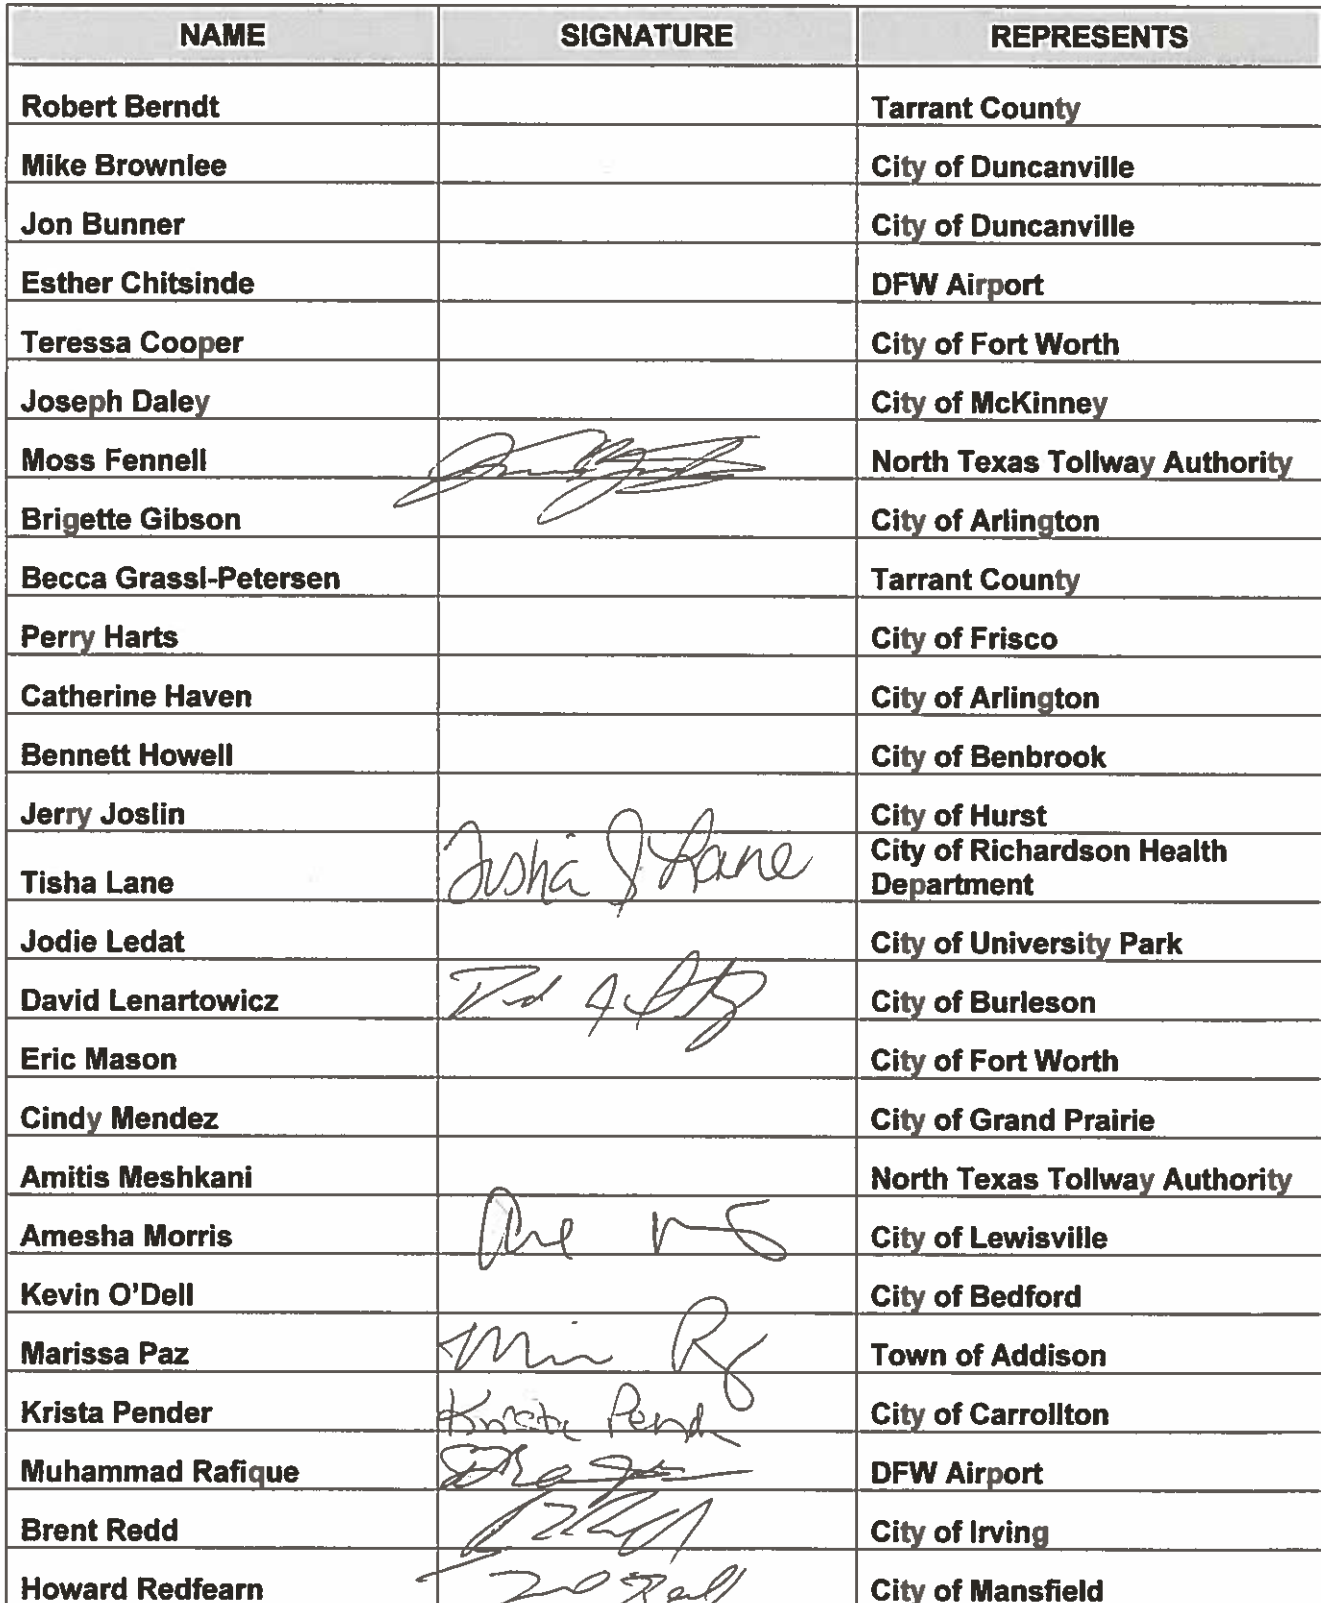 NAME SIGNATURE REPRESENTS
Robert Berndt Tarrant County
Mike Brownlee City of Duncanville
Jon Bunner City of Duncanville
Esther Chitsinde DFW Airport
Teressa Cooper City of Fort Worth
Joseph Daley City of McKinney
Moss Fennell North Texas Tollway Authority
Brigette Gibson City of Arlington
Becca Grassl-Petersen Tarrant County
Perry Harts City of Frisco
Catherine Haven City of Arlington
Bennett Howell City of Benbrook
Jerry Joslin City of Hurst
Tisha Lane Tisha J Lane City of Richardson Health
Department
Jodie Ledat City of University Park
David Lenartowicz City of Burleson
Eric Mason City of Fort Worth
Cindy Mendez City of Grand Prairie
Amitis Meshkani North Texas Tollway Authority
Amesha Morris City of Lewisville
Kevin O'Dell City of Bedford
Marissa Paz Town of Addison
Krista Pender Krista Pend City of Carrollton
Muhammad Rafique DFW Airport
Brent Redd City of Irving
Howard Redfearn City of Mansfield